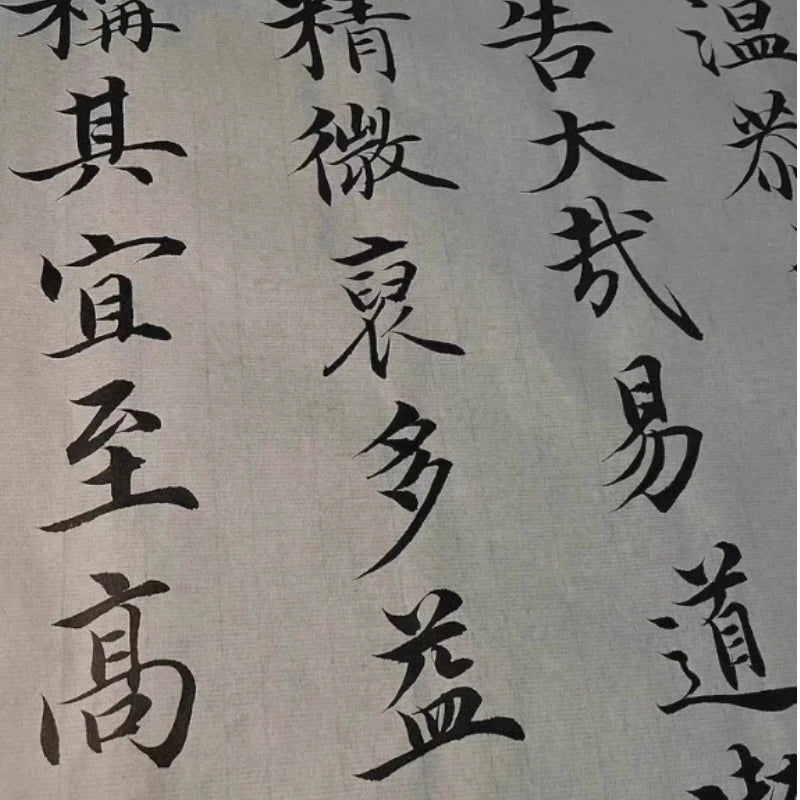 温恭
告大哉易道
精微裒多益
稱其宜至髙